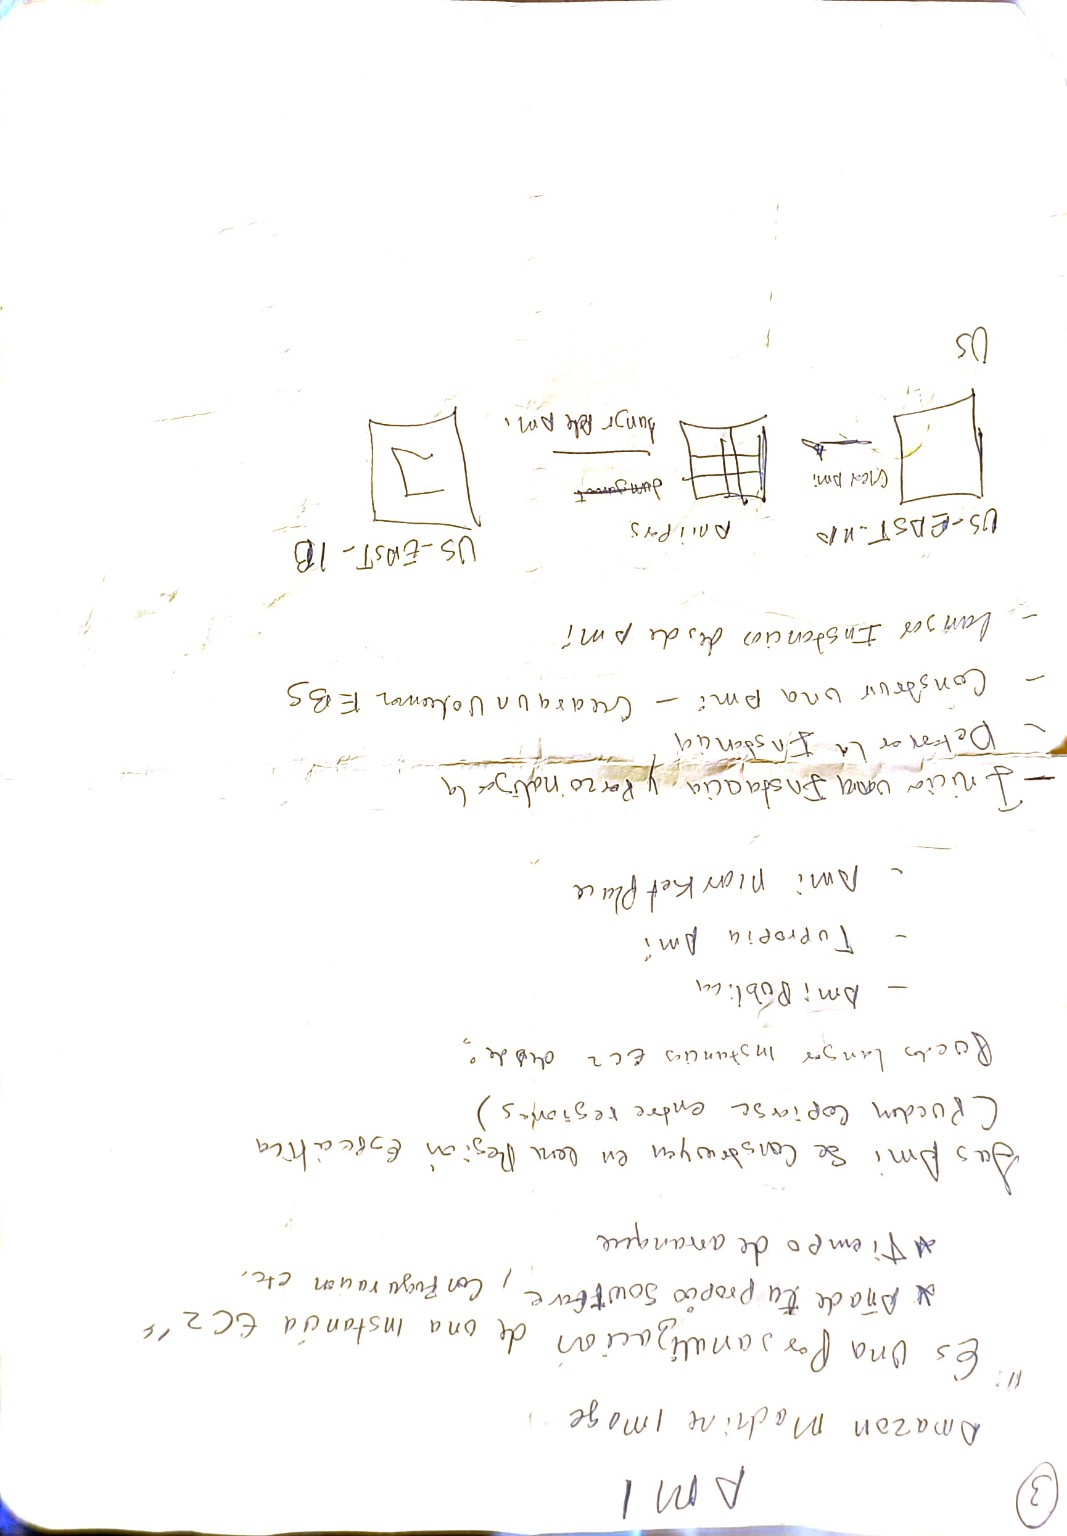 3
AMI
Amazon Machine Image
": Es una personalizacion de una instancia EC2"
* Añade tu propio Sowtfare, Configuracion etc.
* Tiempo de arranque
Las Ami se Construyen en Region Específica
(Pueden Copiarse entre regiones)
Puedes lanzar instancias EC2 desde:
- Ami Pública
- Tu propia Ami
- Ami Marketplace
- Inicia una Instacia y Perzonalizala
- Detener la Instancia
- Construir una Ami - Creara un Volumen EBS
- Lanzar Instancias desde Ami
US-EAST-1A
Ami Pers
US-EAST-1B
Crea Ami
Lanzar Ami
US